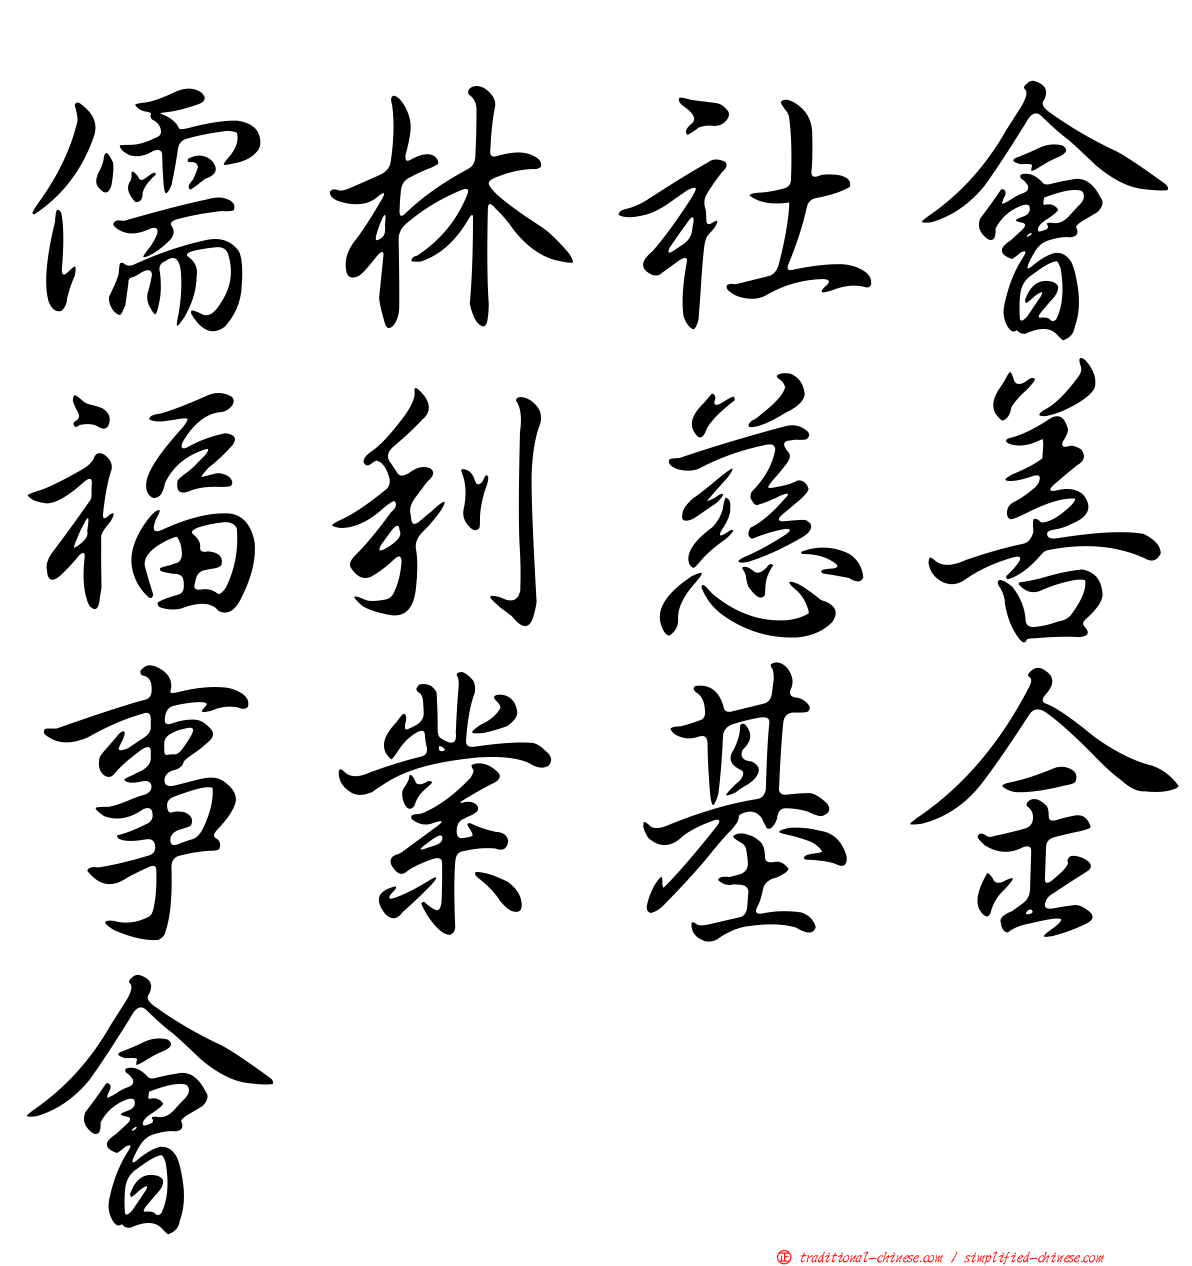 儒林社會
福利慈善
事業基金
會
㊣ traditional-chinese.com / simplified-chinese.com